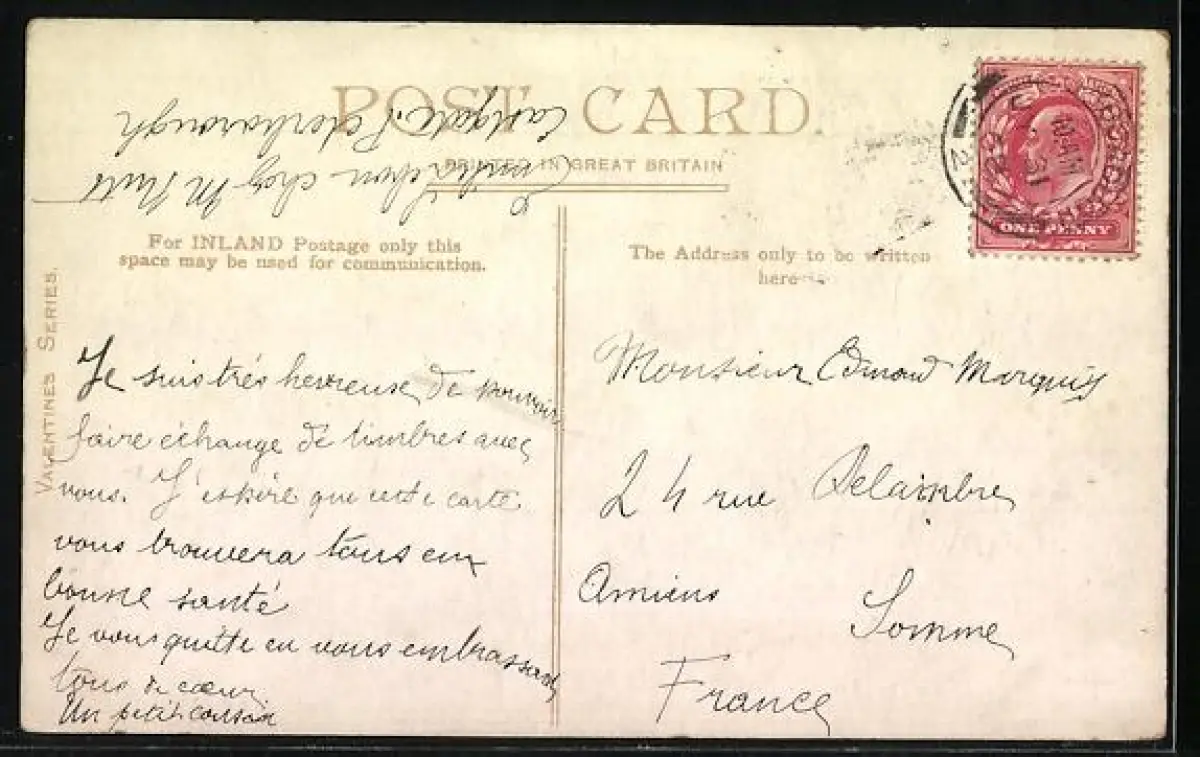 POST CARD.
PRINTED IN GREAT BRITAIN
chez M
Eastgate Peterborough
For INLAND Postage only this
space may be used for communication.
The Address only to be written
here
VALENTINES SERIES.
ONE PENNY
Je suis très heureuse de pouvoir
faire échange de timbres avec
vous. J'espère que cette carte
vous trouvera tous en
bonne santé
Je vous quitte en vous embrassant
tous de cœur
Un petit cousin
Monsieur Edmond Marquis
24 rue Delambre
Amiens Somme
France